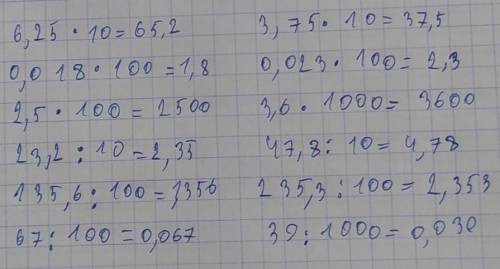 6,25 · 10 = 65,2
3,75 · 10 = 37,5
0,018 · 100 = 1,8
0,023 · 100 = 2,3
2,5 · 100 = 2500
3,6 · 1000 = 3600
23,2 : 10 = 2,35
47,8 : 10 = 4,78
135,6 : 100 = 1,356
235,3 : 100 = 2,353
67 : 100 = 0,067
39 : 1000 = 0,030